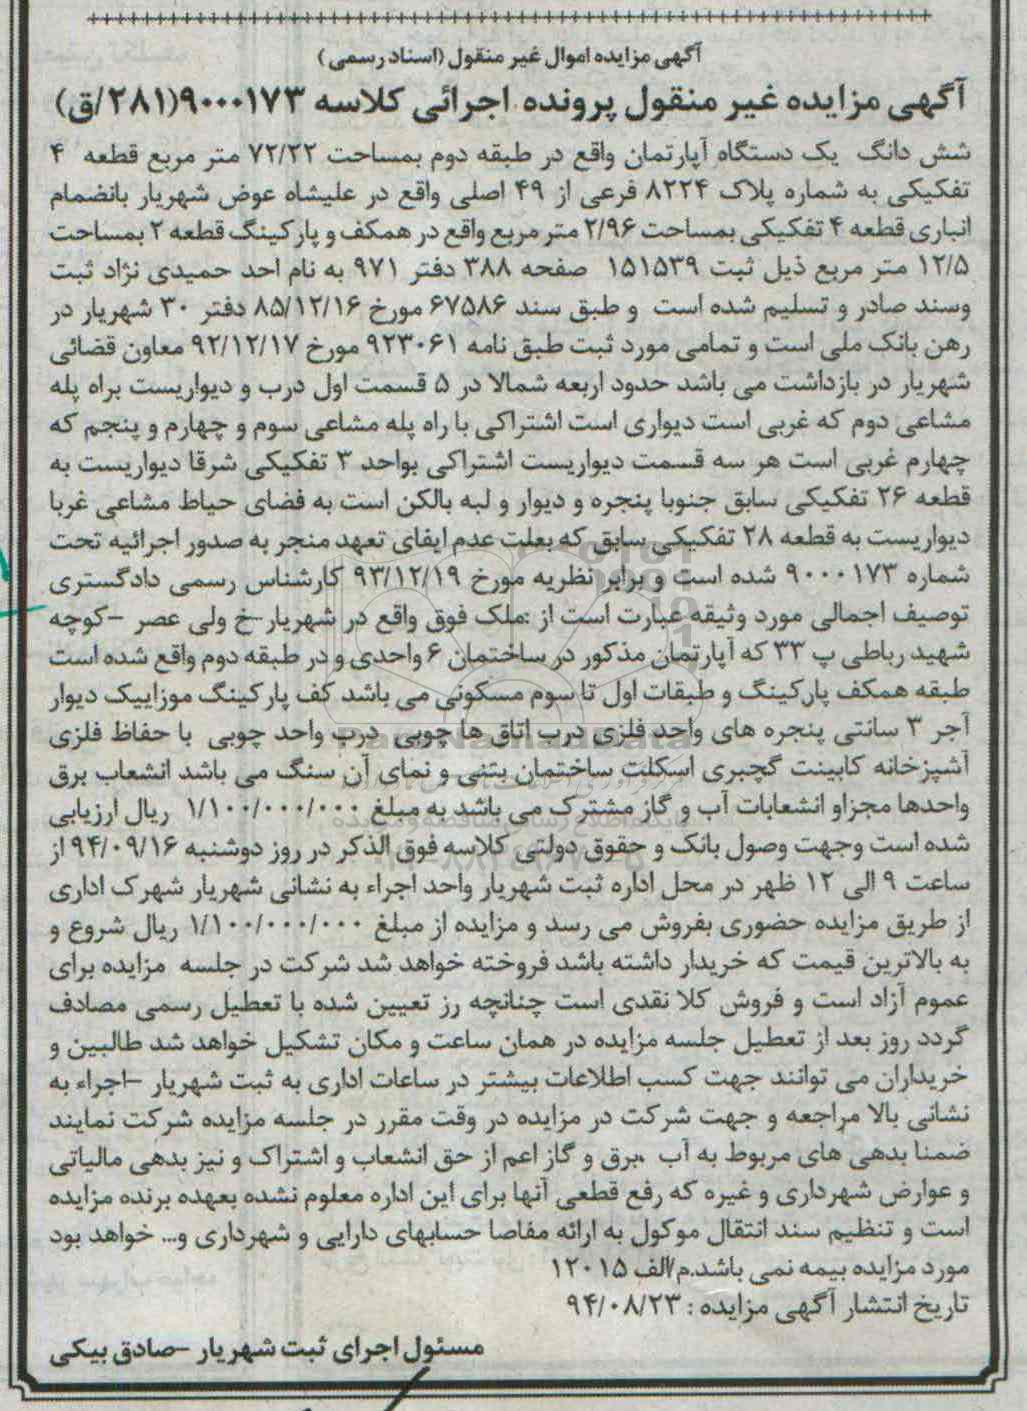 آگهی مزایده اموال غیر منقول (اسناد رسمی)
آگهی مزایده غیر منقول پرونده اجرائی کلاسه ۹۰۰۰۱۷۳(۲۸۱/ق)
شش دانگ یک دستگاه آپارتمان واقع در طبقه دوم بمساحت ۷۲/۲۲ متر مربع قطعه ۴
تفکیکی به شماره پلاک ۸۲۲۴ فرعی از ۴۹ اصلی واقع در علیشاه عوض شهریار بانضمام
انباری قطعه ۴ تفکیکی بمساحت ۲/۹۶ متر مربع واقع در همکف و پارکینگ قطعه ۲ بمساحت
۱۲/۵ متر مربع ذیل ثبت ۱۵۱۵۳۹ صفحه ۳۸۸ دفتر ۹۷۱ به نام احد حمیدی نژاد ثبت
وسند صادر و تسلیم شده است و طبق سند ۶۷۵۸۶ مورخ ۸۵/۱۲/۱۶ دفتر ۳۰ شهریار در
رهن بانک ملی است و تمامی مورد ثبت طبق نامه ۹۲۳۰۶۱ مورخ ۹۲/۱۲/۱۷ معاون قضائی
شهریار در بازداشت می باشد حدود اربعه شمالا در ۵ قسمت اول درب و دیواریست براه پله
مشاعی دوم که غربی است دیواری است اشتراکی با راه پله مشاعی سوم و چهارم و پنجم که
چهارم غربی است هر سه قسمت دیواریست اشتراکی بواحد ۳ تفکیکی شرقا دیواریست به
قطعه ۲۶ تفکیکی سابق جنوبا پنجره و دیوار و لبه بالکن است به فضای حیاط مشاعی غربا
دیواریست به قطعه ۲۸ تفکیکی سابق که بعلت عدم ایفای تعهد منجر به صدور اجرائیه تحت
شماره ۹۰۰۰۱۷۳ شده است و برابر نظریه مورخ ۹۳/۱۲/۱۹ کارشناس رسمی دادگستری
توصیف اجمالی مورد وثیقه عبارت است از :ملک فوق واقع در شهریار-خ ولی عصر -کوچه
شهید رباطی پ ۳۳ که آپارتمان مذکور در ساختمان ۶ واحدی و در طبقه دوم واقع شده است
طبقه همکف پارکینگ و طبقات اول تا سوم مسکونی می باشد کف پارکینگ موزاییک دیوار
آجر ۳ سانتی پنجره های واحد فلزی درب اتاق ها چوبی درب واحد چوبی با حفاظ فلزی
آشپزخانه کابینت گچبری اسکلت ساختمان بتنی و نمای آن سنگ می باشد انشعاب برق
واحدها مجزاو انشعابات آب و گاز مشترک می باشد به مبلغ ۱/۱۰۰/۰۰۰/۰۰۰ ریال ارزیابی
شده است وجهت وصول بانک و حقوق دولتی کلاسه فوق الذکر در روز دوشنبه ۹۴/۰۹/۱۶ از
ساعت ۹ الی ۱۲ ظهر در محل اداره ثبت شهریار واحد اجراء به نشانی شهریار شهرک اداری
از طریق مزایده حضوری بفروش می رسد و مزایده از مبلغ ۱/۱۰۰/۰۰۰/۰۰۰ ریال شروع و
به بالاترین قیمت که خریدار داشته باشد فروخته خواهد شد شرکت در جلسه مزایده برای
عموم آزاد است و فروش کلا نقدی است چنانچه رز تعیین شده با تعطیل رسمی مصادف
گردد روز بعد از تعطیل جلسه مزایده در همان ساعت و مکان تشکیل خواهد شد طالبین و
خریداران می توانند جهت کسب اطلاعات بیشتر در ساعات اداری به ثبت شهریار -اجراء به
نشانی بالا مراجعه و جهت شرکت در مزایده در وقت مقرر در جلسه مزایده شرکت نمایند
ضمنا بدهی های مربوط به آب ،برق و گاز اعم از حق انشعاب و اشتراک و نیز بدهی مالیاتی
و عوارض شهرداری و غیره که رفع قطعی آنها برای این اداره معلوم نشده بعهده برنده مزایده
است و تنظیم سند انتقال موکول به ارائه مفاصا حسابهای دارایی و شهرداری و... خواهد بود
مورد مزایده بیمه نمی باشد.م/الف ۱۲۰۱۵
تاریخ انتشار آگهی مزایده : ۹۴/۰۸/۲۳
مسئول اجرای ثبت شهریار -صادق بیکی